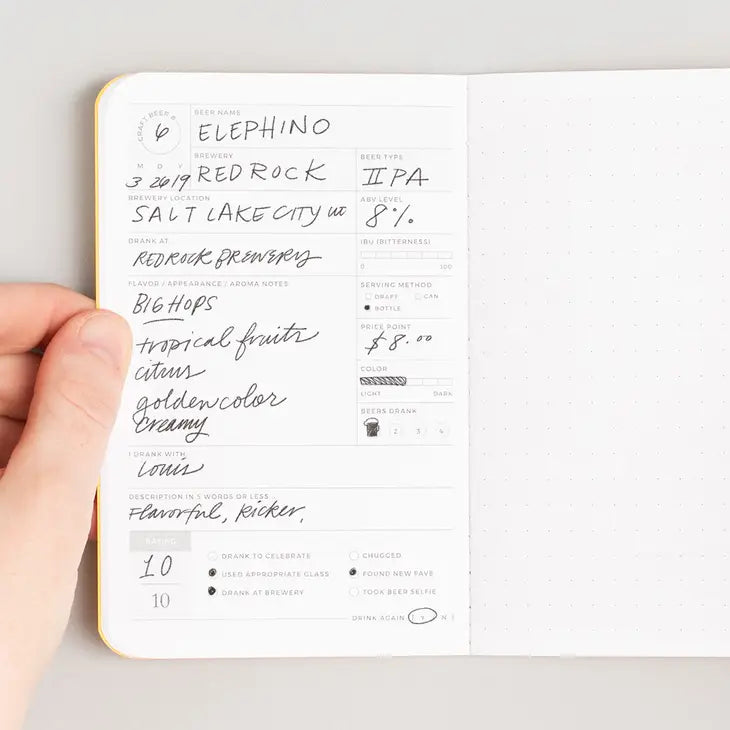 CRAFT BEER #
6
BEER NAME
ELEPHINO
M D Y
3 26 19
BREWERY
RED ROCK
BEER TYPE
IIPA
BREWERY LOCATION
SALT LAKE CITY UT
ABV LEVEL
8%
DRANK AT
RED ROCK BREWERY
IBU (BITTERNESS)
0 100
FLAVOR / APPEARANCE / AROMA NOTES
BIG HOPS
tropical fruits
citrus
golden color
creamy
SERVING METHOD
DRAFT CAN
BOTTLE
PRICE POINT
$8.00
COLOR
LIGHT DARK
BEERS DRANK
2 3 4
I DRANK WITH
Louis
DESCRIPTION IN 5 WORDS OR LESS
Flavorful, Kicker,
RATING
10
10
DRANK TO CELEBRATE CHUGGED
USED APPROPRIATE GLASS FOUND NEW FAVE
DRANK AT BREWERY TOOK BEER SELFIE
DRINK AGAIN | Y N |